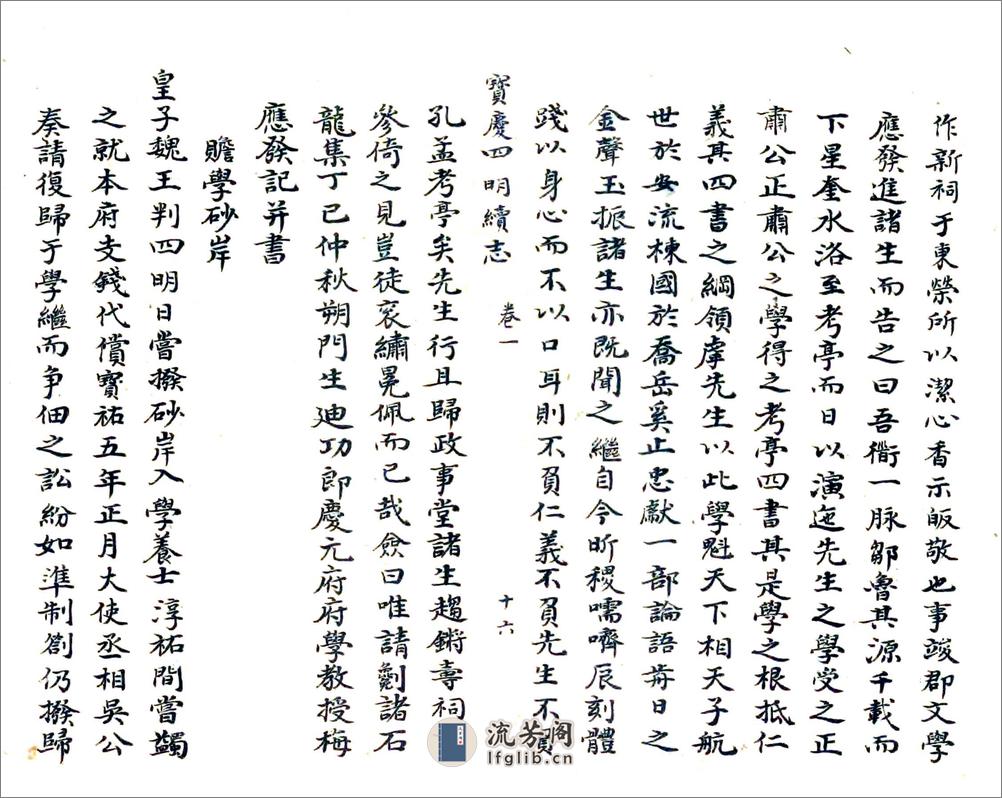 作新祠于東榮所以潔心香示皈敬也事竣郡文學
應發進諸生而告之曰吾衟一脉鄒魯其源千載而
下星奎水洛至考亭而日以演迤先生之學受之正
肅公正肅公之學得之考亭四書其是學之根抵仁
義其四書之綱領虖先生以此學魁天下相天子航
世於安流棟國於喬岳奚止忠獻一部論語莽日之
金聲玉振諸生亦既聞之繼自今昕稷嚅嚌辰刻體
踐以身心而不以口耳則不負仁義不負先生不負
寶慶四明續志 卷一 十六
孔孟考亭矣先生行且歸政事堂諸生趨鏘壽祠
參倚之見豈徒袞繡冕佩而已哉僉曰唯請劖諸石
龍集丁巳仲秋朔門生迪功郎慶元府府學教授梅
應發記并書
贍學砂岸
皇子魏王判四明日嘗撥砂岸入學養士淳祐間嘗蠲
之就本府支錢代償寶祐五年正月大使丞相吳公
奏請復歸于學繼而爭佃之訟紛如準制劄仍撥歸
流芳阁
lfglib.cn